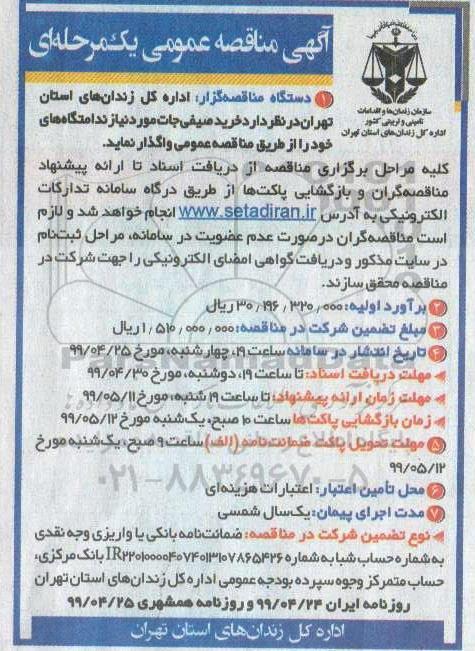 آگهی مناقصه عمومی یک‌مرحله‌ای
سازمان زندان‌ها و اقدامات
تامینی و تربیتی کشور
اداره کل زندان‌های استان تهران
۱ دستگاه مناقصه‌گزار: اداره کل زندان‌های استان
تهران در نظر دارد خرید صیفی‌جات مورد نیاز ندامتگاه‌های
خود را از طریق مناقصه عمومی واگذار نماید.
کلیه مراحل برگزاری مناقصه از دریافت اسناد تا ارائه پیشنهاد
مناقصه‌گران و بازگشایی پاکت‌ها از طریق درگاه سامانه تدارکات
الکترونیکی به آدرس www.setadiran.ir انجام خواهد شد و لازم
است مناقصه‌گران در صورت عدم عضویت در سامانه، مراحل ثبت‌نام
در سایت مذکور و دریافت گواهی امضای الکترونیکی را جهت شرکت در
مناقصه محقق سازند.
۲ برآورد اولیه: ۳۰٫۱۹۶٫۳۲۰٫۰۰۰ ریال
۳ مبلغ تضمین شرکت در مناقصه: ۱٫۵۱۰٫۰۰۰٫۰۰۰ ریال
۴ تاریخ انتشار در سامانه ساعت ۱۹، چهارشنبه، مورخ ۹۹/۰۴/۲۵
مهلت دریافت اسناد: تا ساعت ۱۹، دوشنبه، مورخ ۹۹/۰۴/۳۰
مهلت زمان ارائه پیشنهاد: تا ساعت ۱۹ شنبه، مورخ ۹۹/۰۵/۱۱
زمان بازگشایی پاکت‌ها ساعت ۱۰ صبح، یک‌شنبه مورخ ۹۹/۰۵/۱۲
۵ مهلت تحویل پاکت ضمانت‌نامه (الف) ساعت ۹ صبح، یک‌شنبه مورخ
۹۹/۰۵/۱۲
۰۲۱-۸۸۳۴۹۶۷۰-۵
۶ محل تأمین اعتبار: اعتبارات هزینه‌ای
۷ مدت اجرای پیمان: یک‌سال شمسی
نوع تضمین شرکت در مناقصه: ضمانت‌نامه بانکی یا واریزی وجه نقدی
به شماره حساب شبا به شماره IR۲۲۰۱۰۰۰۰۴۰۷۴۰۱۳۱۰۷۸۶۵۴۲۶ بانک مرکزی،
حساب متمرکز وجوه سپرده بودجه عمومی اداره کل زندان‌های استان تهران
روزنامه ایران ۹۹/۰۴/۲۴ و روزنامه همشهری ۹۹/۰۴/۲۵
اداره کل زندان‌های استان تهران